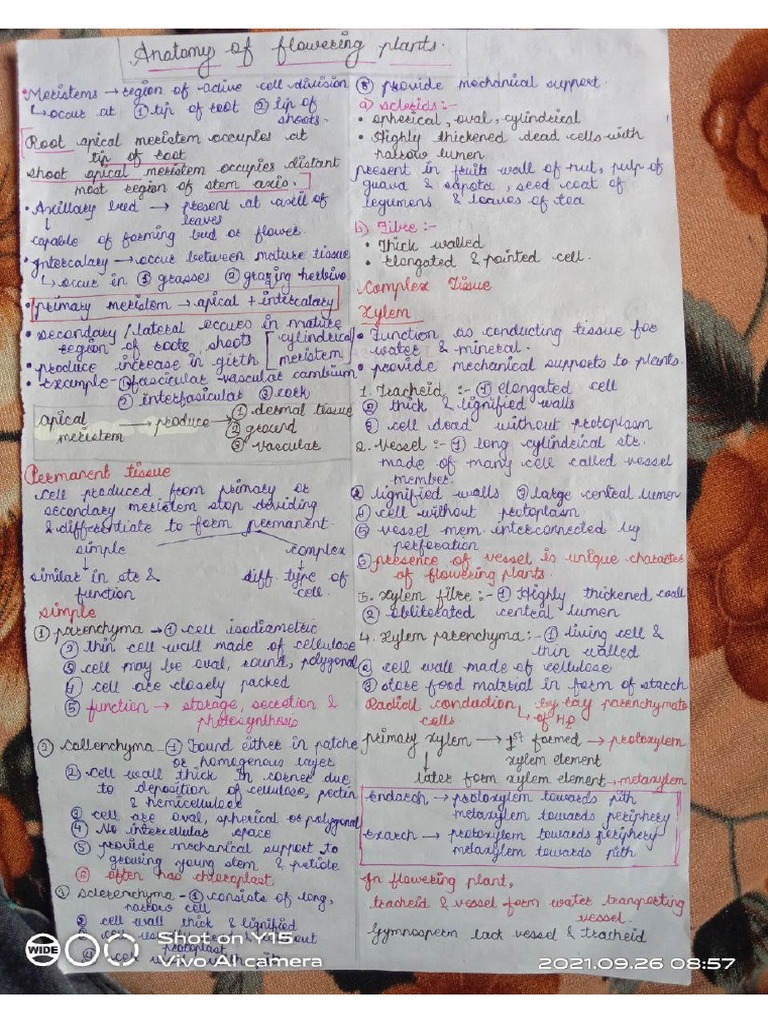 Anatomy of flowering plants.
• Meristems → region of active cell division
↳ occur at ① tip of root ② tip of
shoots.
Root apical meristem occupies at
tip of root
shoot apical meristem occupies distant
most region of stem axis.
• Axillary bud → present at axil of
leaves
↓
capable of forming bud or flower.
• Intercalary → occur between mature tissue
↳ occur in ① grasses ② grazing herbivo
• primary meristem → apical + intercalary
• secondary / lateral occurs in mature
region of roots, shoots [cylindrical
meristem
• produce increase in girth
• Example - ① fascicular - vascular cambium
② interfasicular ③ cork
apical meristem → produce → ① dermal tissue
② ground
③ vascular
Permanent tissue
Cell produced from primary or
secondary meristem stop dividing
& differentiate to form permanent.
simple complex
↓ ↓
similar in str & diff. type of
function cell.
simple
① parenchyma → ① cell isodiametric
② thin cell wall made of cellulose
③ cell may be oval, round, polygonal
④ cell are closely packed
⑤ function → storage, secretion &
photosynthesis
② Collenchyma - ① Found either in patche
or homogenous layer
② cell wall thick in corner due
to deposition of cellulose, pectin
& hemicellulose
③ cell are oval, spherical or polygonal
④ No intercellular space
⑤ provide mechanical support to
growing young stem & petiole
⑥ often has chloroplast
③ sclerenchyma - ① consists of long,
narrow cell
② cell wall thick & lignified
protoplast
④ cell
⑤ provide mechanical support.
a) sclerids :-
• spherical, oval, cylindrical
• Highly thickened dead cells with
narrow lumen
present in fruits wall of nut, pulp of
guava & sapota, seed coat of
legumens & leaves of tea
b) Fibre :-
• Thick walled
• Elongated & pointed cell.
Complex Tissue
Xylem
• Function as conducting tissue for
water & mineral.
• provide mechanical supports to plants.
1. Tracheid :- ① elongated cell
② thick & lignified walls
③ cell dead without protoplasm
2. Vessel :- ① long cylindrical str.
made of many cell called vessel
member.
② lignified walls ③ large central lumen
④ cell without protoplasm
⑤ vessel mem. interconnected by
perforation
⑥ presence of vessel is unique character
of flowering plants.
3. Xylem fibre :- ① Highly thickened wall
② obliterated central lumen
4. Xylem parenchyma :- ① living cell &
thin walled
② cell wall made of cellulose
③ store food material in form of starch
Radial conduction ↳ by ray parenchymato
cells of H₂O
primary xylem → 1st formed → protoxylem
xylem element
↓
later form xylem element → metaxylem
Endarch → protoxylem towards pith
metaxylem towards periphery
Exarch → protoxylem towards periphery
metaxylem towards pith
In flowering plant,
tracheid & vessel form water transporting
vessel.
Gymnosperm lack vessel & tracheid
WIDE
Shot on Y15
Vivo AI camera
2021.09.26 08:57